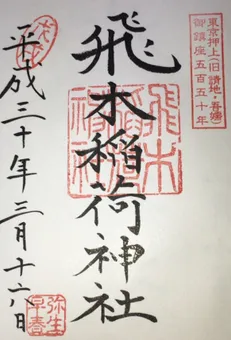 東京押上(旧 請地・吾嬬)
御鎮座五百五十年
飛木稲荷神社
飛木稲荷
平成三十年三月十六日
弥生
早春